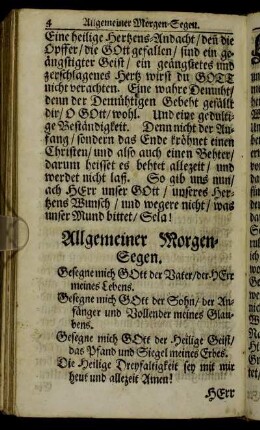 4 Allgemeiner Morgen-Segen.
Eine heilige Hertzens-Andacht/ deñ die
Opffer/ die GOtt gefallen/ sind ein ge-
ängstigter Geist/ ein geängstetes und
zerschlagenes Hertz wirst du GOTT
nicht verachten. Eine wahre Demuht/
denn der Demühtigen Gebeht gefällt
dir/ O GOtt/ wohl. Und eine gedulti-
ge Beständigkeit. Denn nicht der An-
fang/ sondern das Ende kröhnet einen
Christen/ und also auch einen Behter/
darum heisset es behtet allezeit/ und
werdet nicht laß. So gib uns nun/
ach HErr unser GOtt/ unseres Her-
tzens Wunsch/ und wegere nicht/ was
unser Mund bittet/ Sela!
Allgemeiner Morgen-
Segen.
Gesegne mich GOtt der Vater/ der HErr
meines Lebens.
Gesegne mich GOtt der Sohn/ der An-
fänger und Vollender meines Glau-
bens.
Gesegne mich GOtt der Heilige Geist/
das Pfand und Siegel meines Erbes.
Die Heilige Dreyfaltigkeit sey mit mir
heut und allezeit Amen!
HErr